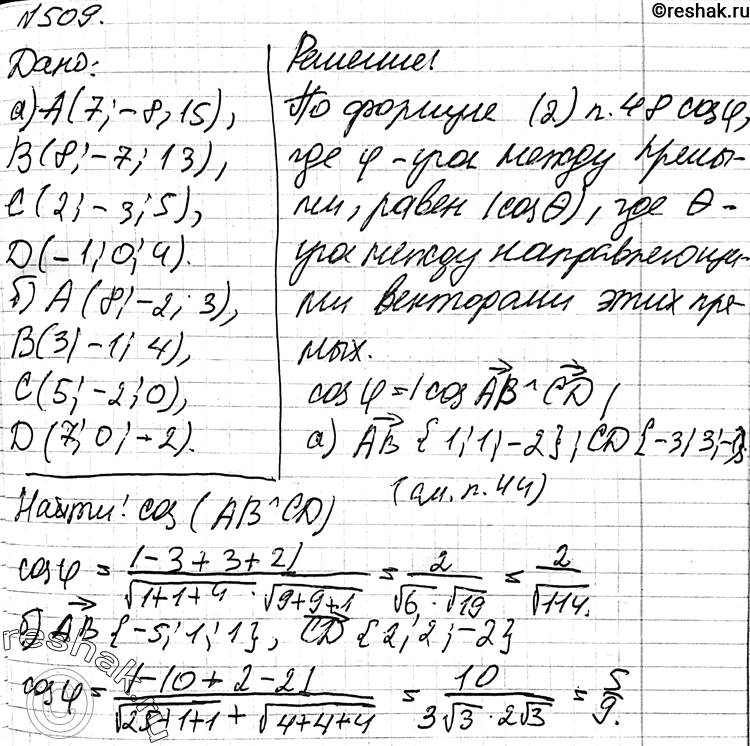 ©reshak.ru
№509.
Дано:
а) A(7; -8; 15),
B(8; -7; 13),
C(2; -3; 5),
D(-1; 0; 4).
б) A(8; -2; 3),
B(3; -1; 4),
C(5; -2; 0),
D(7; 0; -2).
Найти: cos(AB^CD)
Решение:
По формуле (2) п.48 cosφ,
где φ - угол между прямы-
ми, равен |cosθ|, где θ -
угол между направляющи-
ми векторами этих пря-
мых.
cosφ = |cos AB^CD|
а) AB {1; 1; -2}; CD {-3; 3; -1}
(см. п.44)
cosφ = |-3+3+2| / √1+1+4 · √9+9+1 = 2 / √6 · √19 = 2 / √114.
б) AB {-5; 1; 1}, CD {2; 2; -2}
cosφ = |-10+2-2| / √25+1+1 + √4+4+4 = 10 / 3√3 · 2√3 = 5/9.
reshak.ru